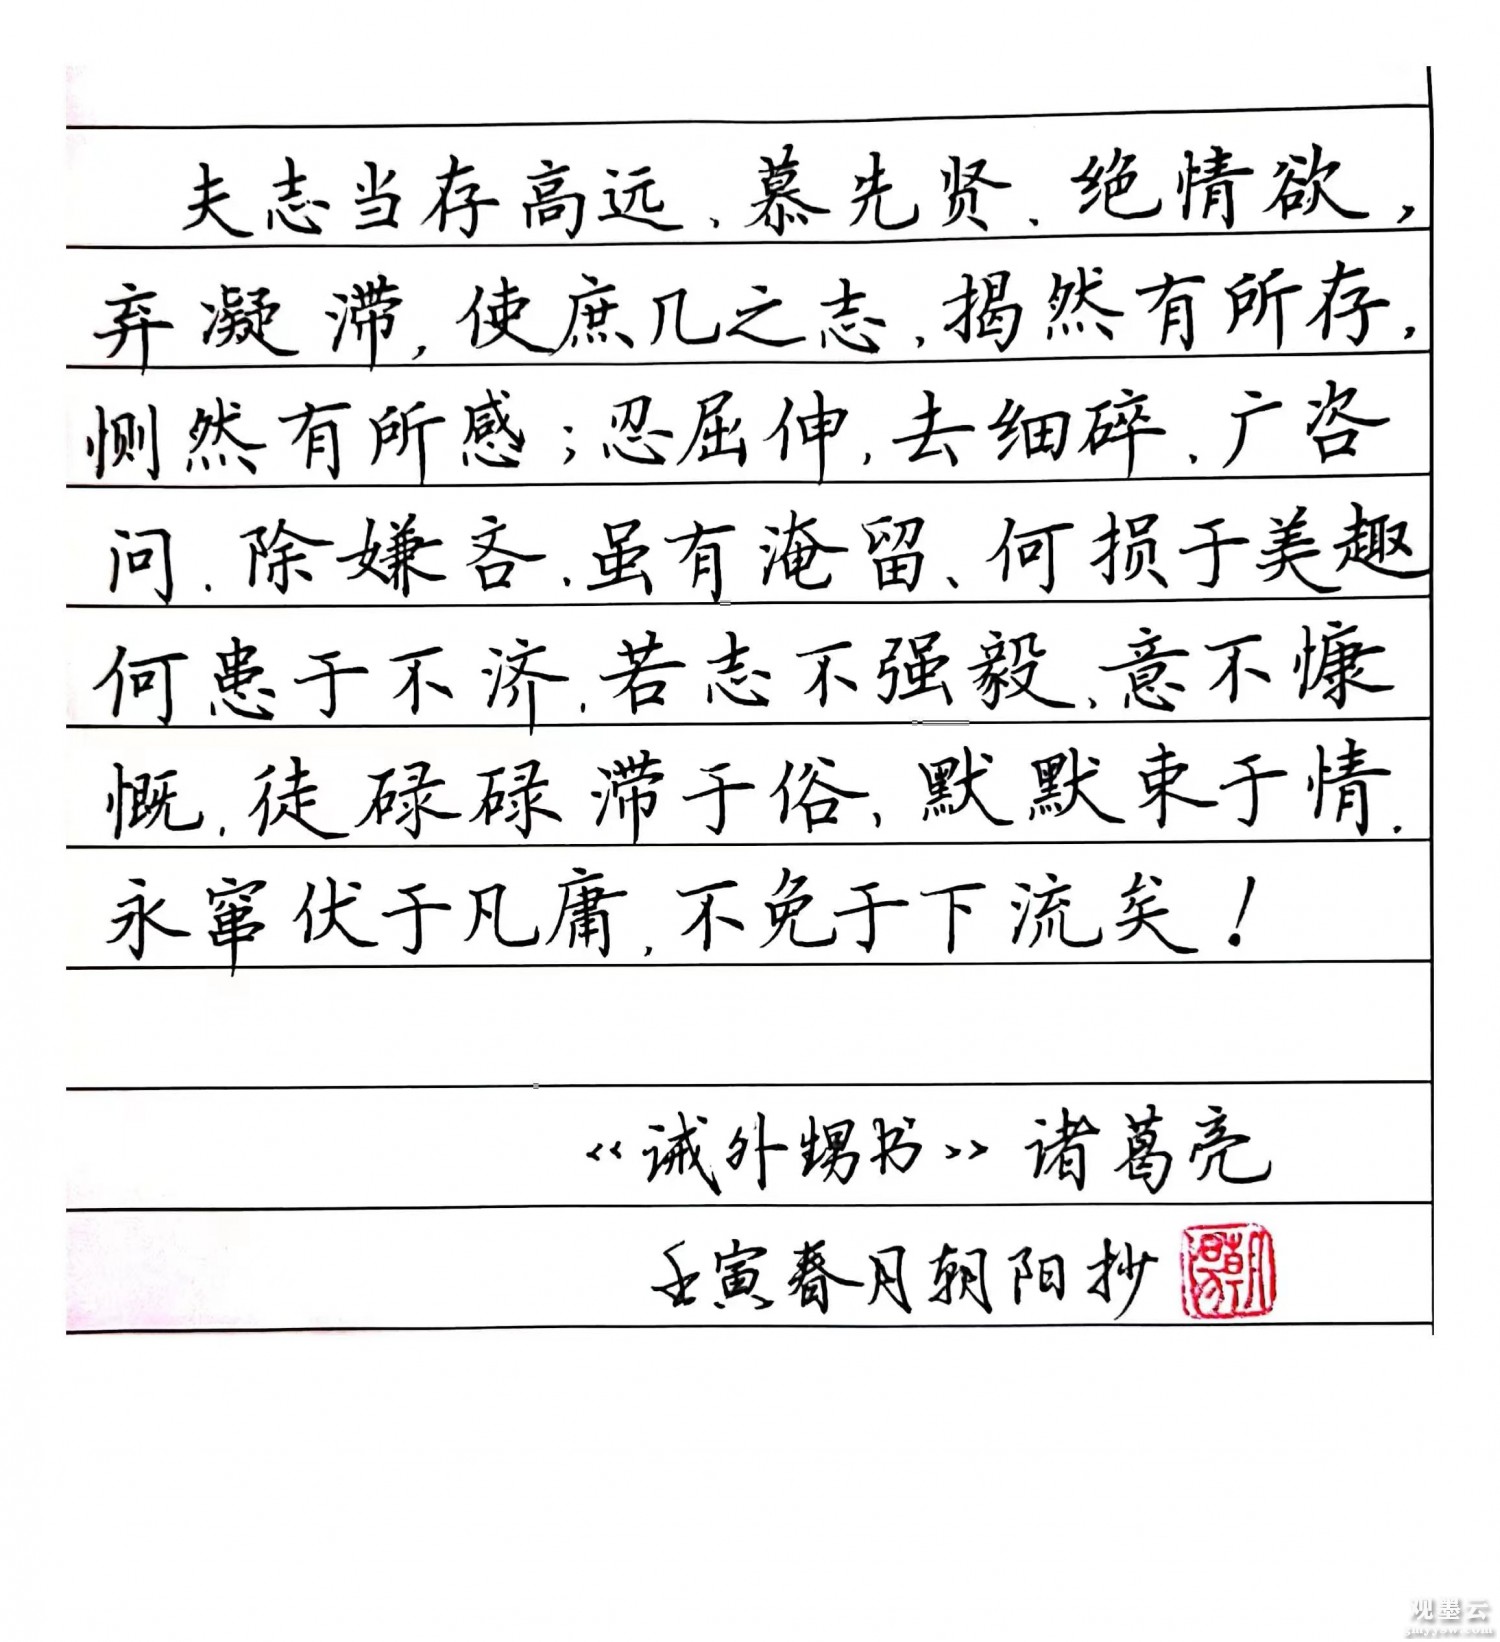 夫志当存高远，慕先贤，绝情欲，
弃凝滞，使庶几之志，揭然有所存，
恻然有所感；忍屈伸，去细碎，广咨
问，除嫌吝，虽有淹留、何损于美趣
何患于不济，若志不强毅，意不慷
慨，徒碌碌滞于俗，默默束于情．
永窜伏于凡庸，不免于下流矣！
《诫外甥书》诸葛亮
壬寅春月朝阳抄
朝阳
观墨云
gmyyow.com